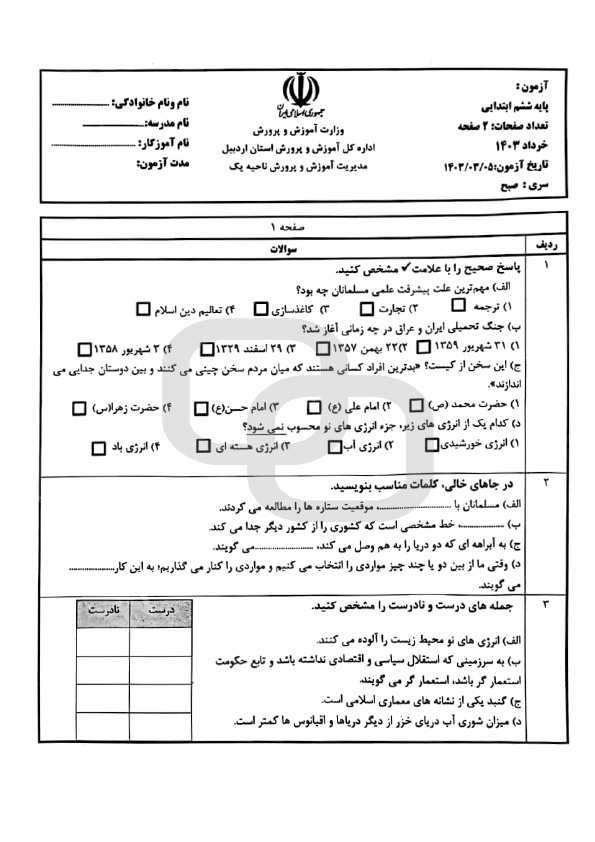 آزمون :
پایه ششم ابتدایی
تعداد صفحات: ۲ صفحه
خرداد ۱۴۰۳
تاریخ آزمون:۱۴۰۳/۰۳/۰۵
سری : صبح
جمهوری اسلامی ایران
وزارت آموزش و پرورش
اداره کل آموزش و پرورش استان اردبیل
مدیریت آموزش و پرورش ناحیه یک
نام ونام خانوادگی: ....................
نام مدرسه: ....................
نام آموزگار: ....................
مدت آزمون:
صفحه ۱
ردیف سوالات
۱ پاسخ صحیح را با علامت✓ مشخص کنید.
الف) مهم‌ترین علت پیشرفت علمی مسلمانان چه بود؟
۱) ترجمه □ ۲) تجارت □ ۳) کاغذسازی □ ۴) تعالیم دین اسلام □
ب) جنگ تحمیلی ایران و عراق در چه زمانی آغاز شد؟
۱) ۳۱ شهریور ۱۳۵۹ □ ۲)۲۲ بهمن ۱۳۵۷ □ ۳) ۲۹ اسفند ۱۳۲۹ □ ۴) ۳ شهریور ۱۳۵۸ □
ج) این سخن از کیست؟ «بدترین افراد کسانی هستند که میان مردم سخن چینی می کنند و بین دوستان جدایی می
اندازند».
۱) حضرت محمد (ص) □ ۲) امام علی (ع) □ ۳) امام حسن(ع) □ ۴) حضرت زهرا(س) □
د) کدام یک از انرژی های زیر، جزء انرژی های نو محسوب نمی شود؟
۱) انرژی خورشیدی □ ۲) انرژی آب □ ۳) انرژی هسته ای □ ۴) انرژی باد □
۲ در جاهای خالی، کلمات مناسب بنویسید.
الف) مسلمانان با ........................، موقعیت ستاره ها را مطالعه می کردند.
ب) ................، خط مشخصی است که کشوری را از کشور دیگر جدا می کند.
ج) به آبراهه ای که دو دریا را به هم وصل می کند، ....................می گویند.
د) وقتی ما از بین دو یا چند چیز مواردی را انتخاب می کنیم و مواردی را کنار می گذاریم؛ به این کار....................
می گویند.
۳ جمله های درست و نادرست را مشخص کنید.
درست نادرست
الف) انرژی های نو محیط زیست را آلوده می کنند.
ب) به سرزمینی که استقلال سیاسی و اقتصادی نداشته باشد و تابع حکومت
استعمار گر باشد، استعمار گر می گویند.
ج) گنبد یکی از نشانه های معماری اسلامی است.
د) میزان شوری آب دریای خزر از دیگر دریاها و اقیانوس ها کمتر است.